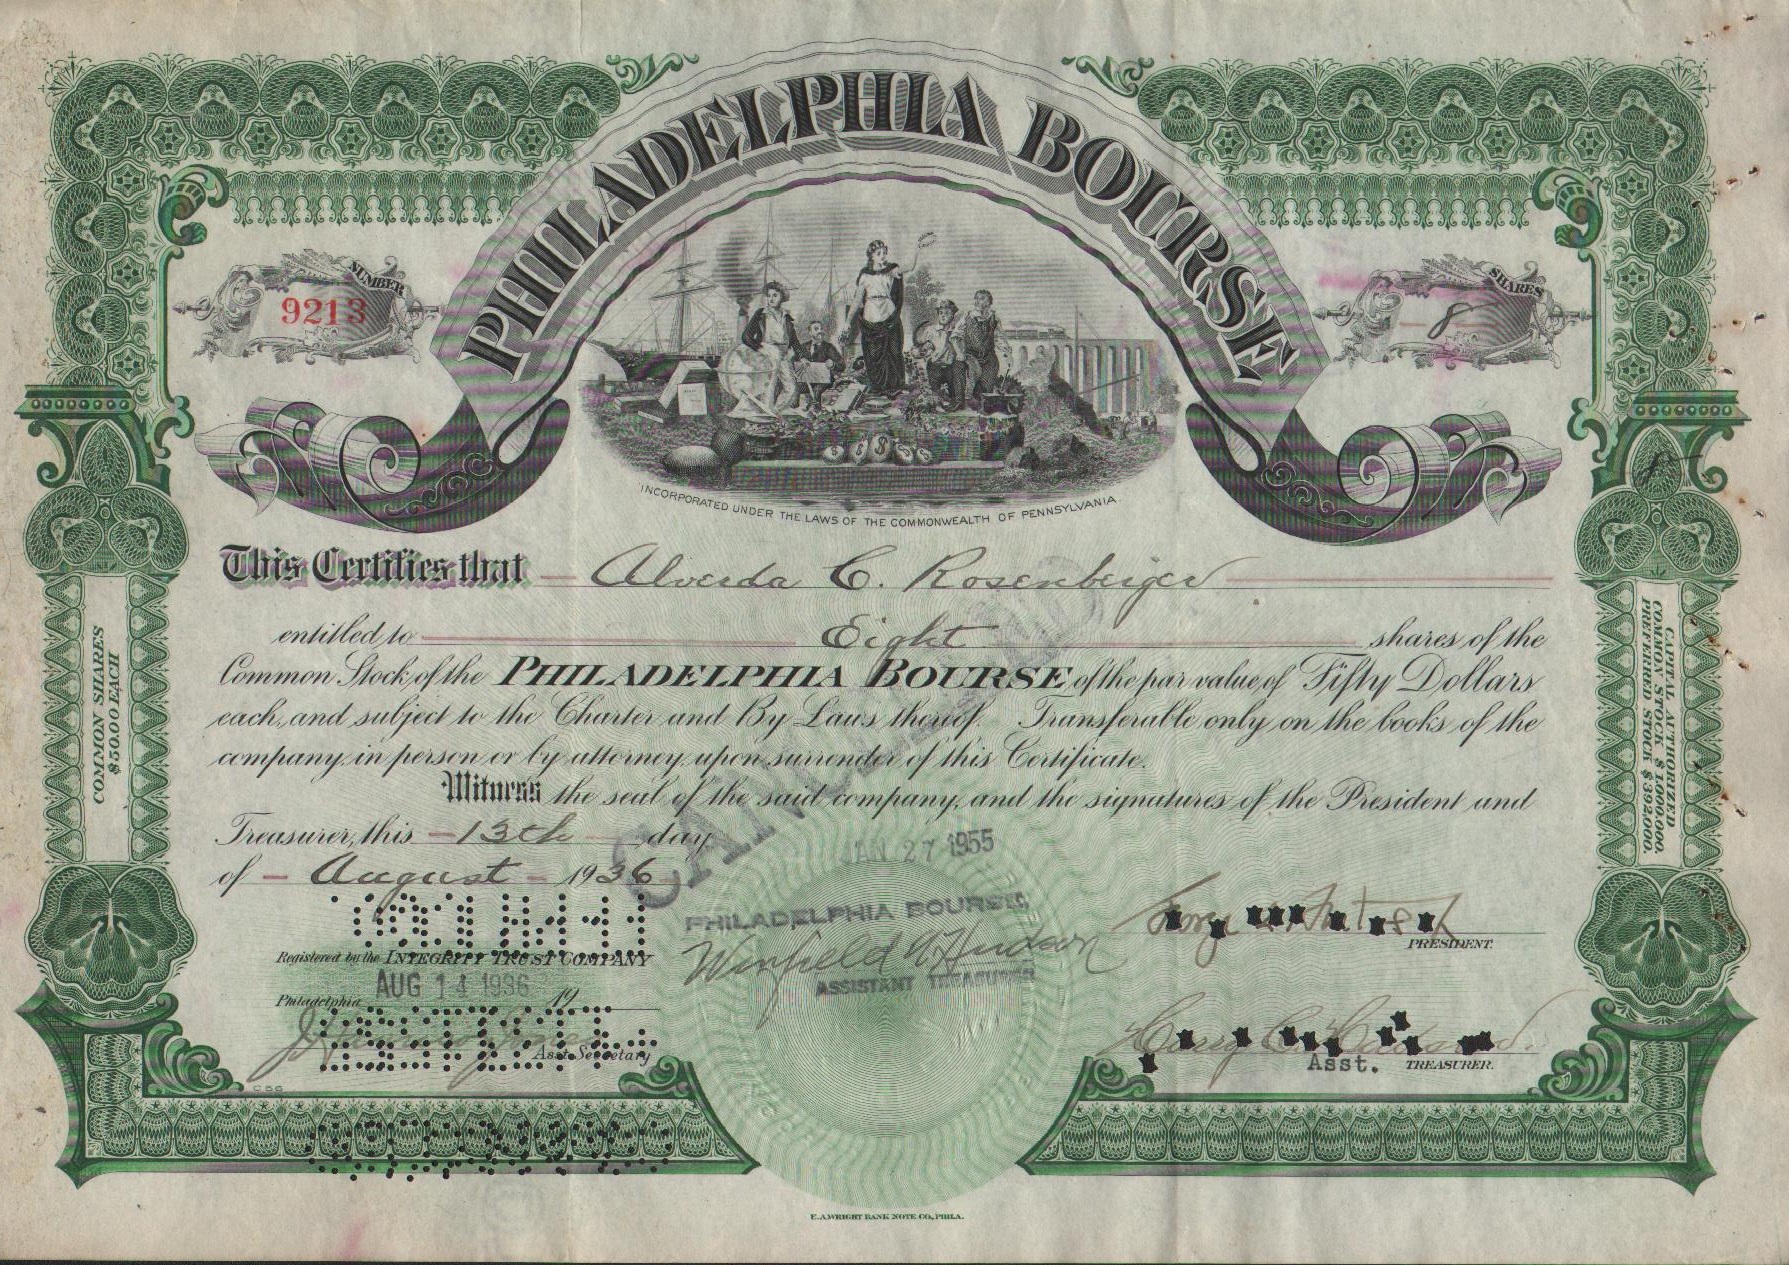 PHILADELPHIA BOURSE
NUMBER
9213
SHARES
8
INCORPORATED UNDER THE LAWS OF THE COMMONWEALTH OF PENNSYLVANIA
This Certifies that Alverda C. Rosenberger
entitled to Eight shares of the
Common Stock of the PHILADELPHIA BOURSE of the par value of Fifty Dollars
each, and subject to the Charter and By Laws thereof. Transferable only on the books of the
company, in person or by attorney, upon surrender of this Certificate.
Witness the seal of the said company, and the signatures of the President and
Treasurer, this 13th day
of August 1936
CANCELLED
JAN 27 1955
PHILADELPHIA BOURSE,
Winfield A Hudson
ASSISTANT TREASURER
PRESIDENT.
Registered by the INTEGRITY TRUST COMPANY
AUG 14 1936
Philadelphia 19
Asst. Secretary
Asst. TREASURER.
COMMON SHARES
$50.00 EACH
CAPITAL AUTHORIZED
COMMON STOCK $1,000,000.
PREFERRED STOCK $393,000.
E.A.WRIGHT BANK NOTE CO., PHILA.